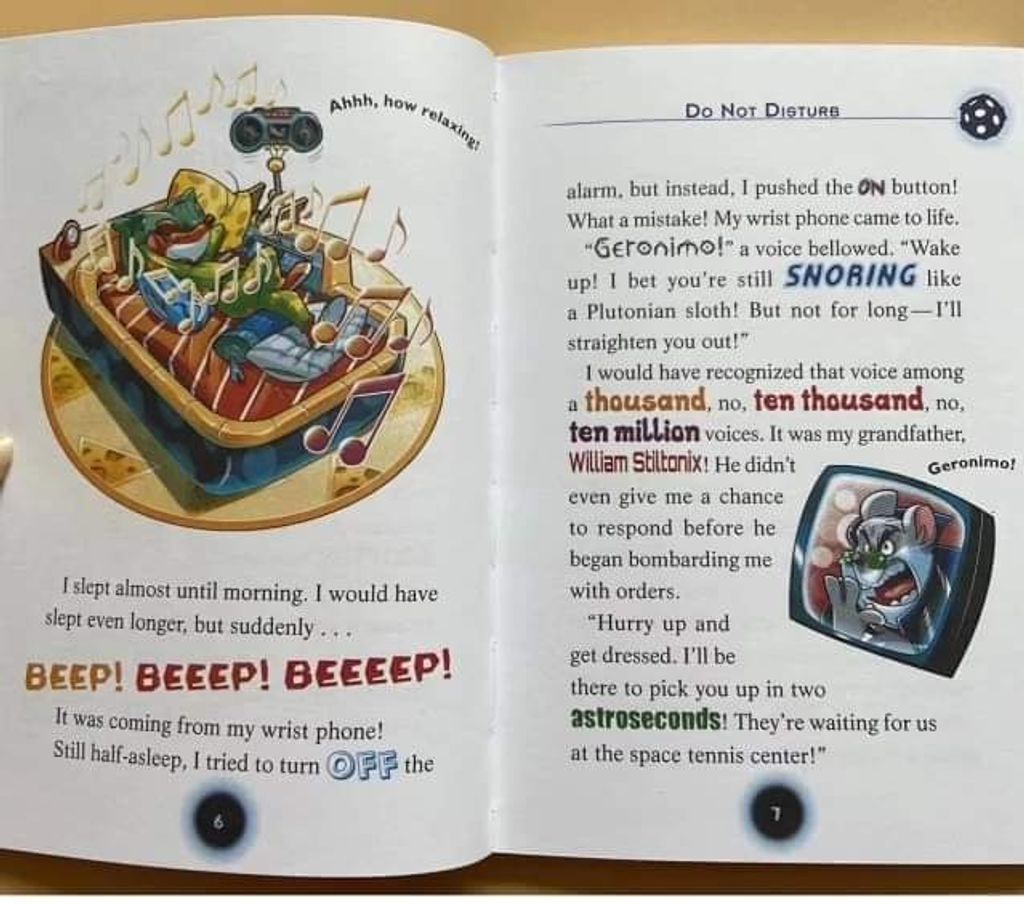 Ahhh, how relaxing!
I slept almost until morning. I would have
slept even longer, but suddenly . . .
BEEP! BEEEP! BEEEEP!
It was coming from my wrist phone!
Still half-asleep, I tried to turn OFF the
6
Do Not Disturb
alarm, but instead, I pushed the ON button!
What a mistake! My wrist phone came to life.
“Geronimo!” a voice bellowed. “Wake
up! I bet you’re still SNORING like
a Plutonian sloth! But not for long—I’ll
straighten you out!”
I would have recognized that voice among
a thousand, no, ten thousand, no,
ten million voices. It was my grandfather,
William Stiltonix! He didn’t
even give me a chance
to respond before he
began bombarding me
with orders.
Geronimo!
“Hurry up and
get dressed. I’ll be
there to pick you up in two
astroseconds! They’re waiting for us
at the space tennis center!”
7